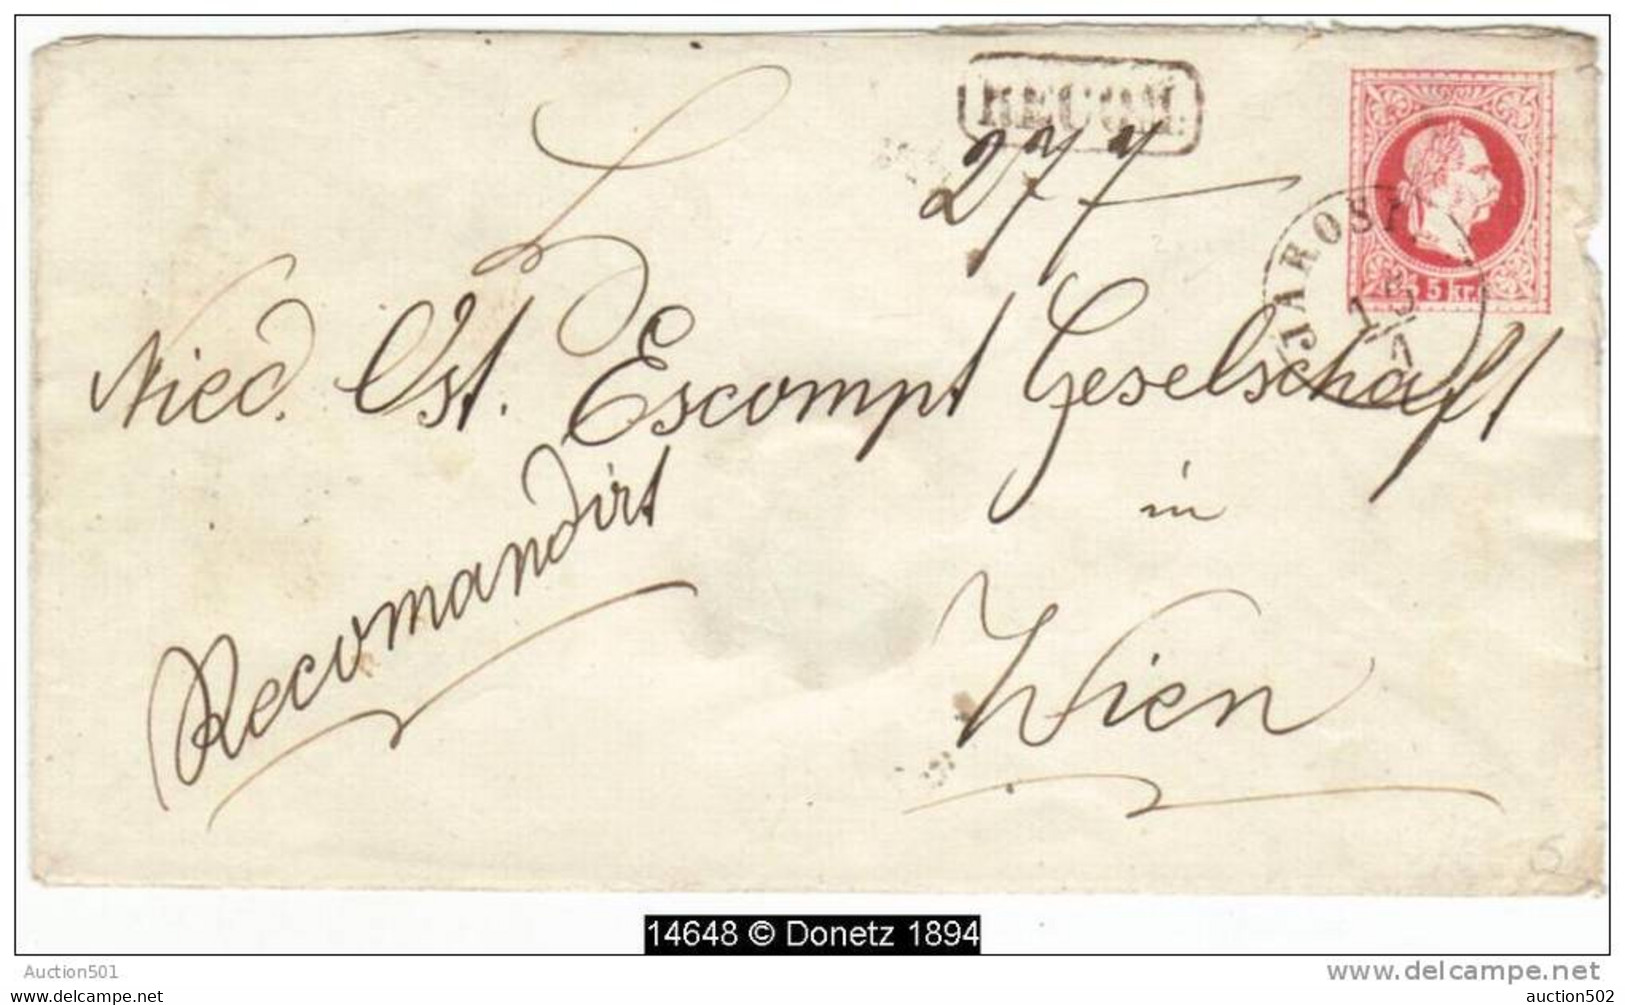 RECOM.
277
JAROS
15
5 kr.
Nied. Öst. Escompt Geselschaft
in
Wien
Recomandirt
5
14648 © Donetz 1894
Auction501
www.delcampe.net
auction502